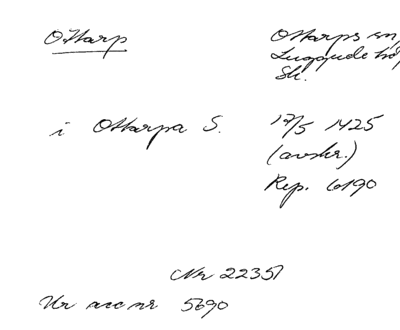 Ottarp
Ottarps sn,
Luggude hd
Sk.
i Ottarpa S.
17/5 1425
(avskr.)
Rep. 6190
Nr 22357
Ur acc nr 5690